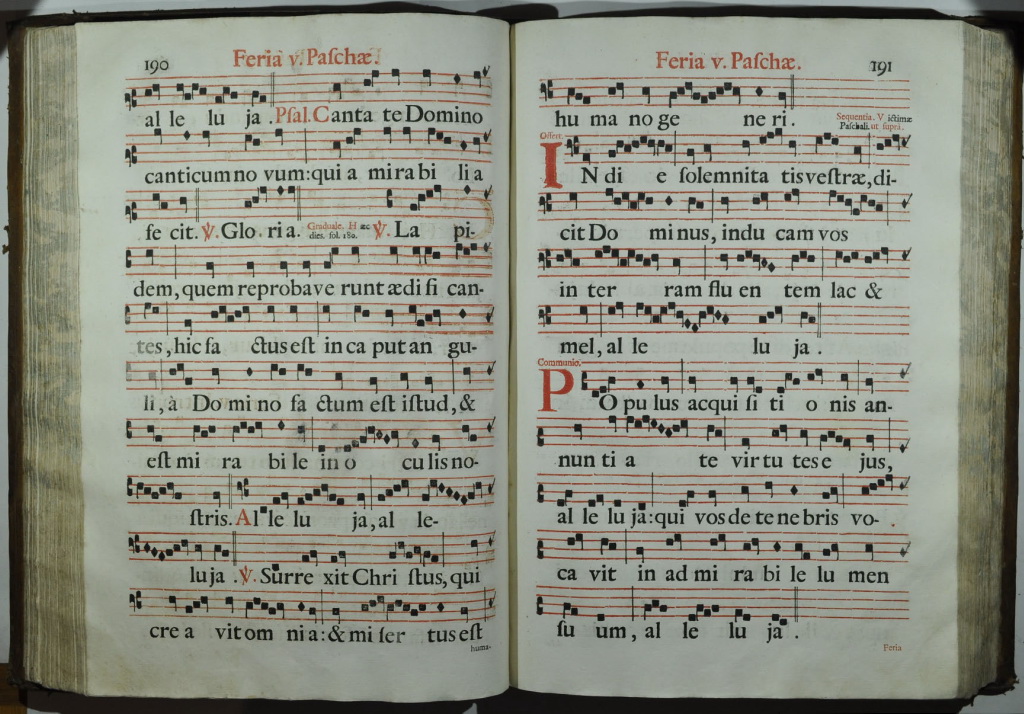 190
Feria v. Paſchæ.
al le lu ja . Pſal. Canta te Domino
canticum no vum: qui a mi ra bi li a
fe cit. ℣. Glo . ri a. Graduale. Hæc dies. fol. 180. ℣. La pi-
dem, quem reprobave runt ædi fi can-
tes, hic fa ctus eſt in ca put an gu-
li, à Do mi no fa ctum eſt iſtud, &
eſt mi ra bi le in o cu lis no-
ſtris. Al le lu ja, al le-
lu ja . ℣. Surre xit Chri ſtus, qui
cre a vit om ni a: & mi ſer tus eſt
huma-
Feria v. Paſchæ.
191
hu ma no ge ne ri. Sequentia. Victimæ
Paſchali. ut ſuprà.
Offert.
IN di e ſolemnita tis veſtræ, di-
cit Do mi nus, indu cam vos
in ter ram flu en tem lac &
mel, al le lu ja .
Communio.
PO pu lus acqui ſi ti o nis an-
nun ti a te vir tu tes e jus,
al le lu ja: qui vos de te ne bris vo-
ca vit in ad mi ra bi le lu men
ſu um, al le lu ja .
Feria